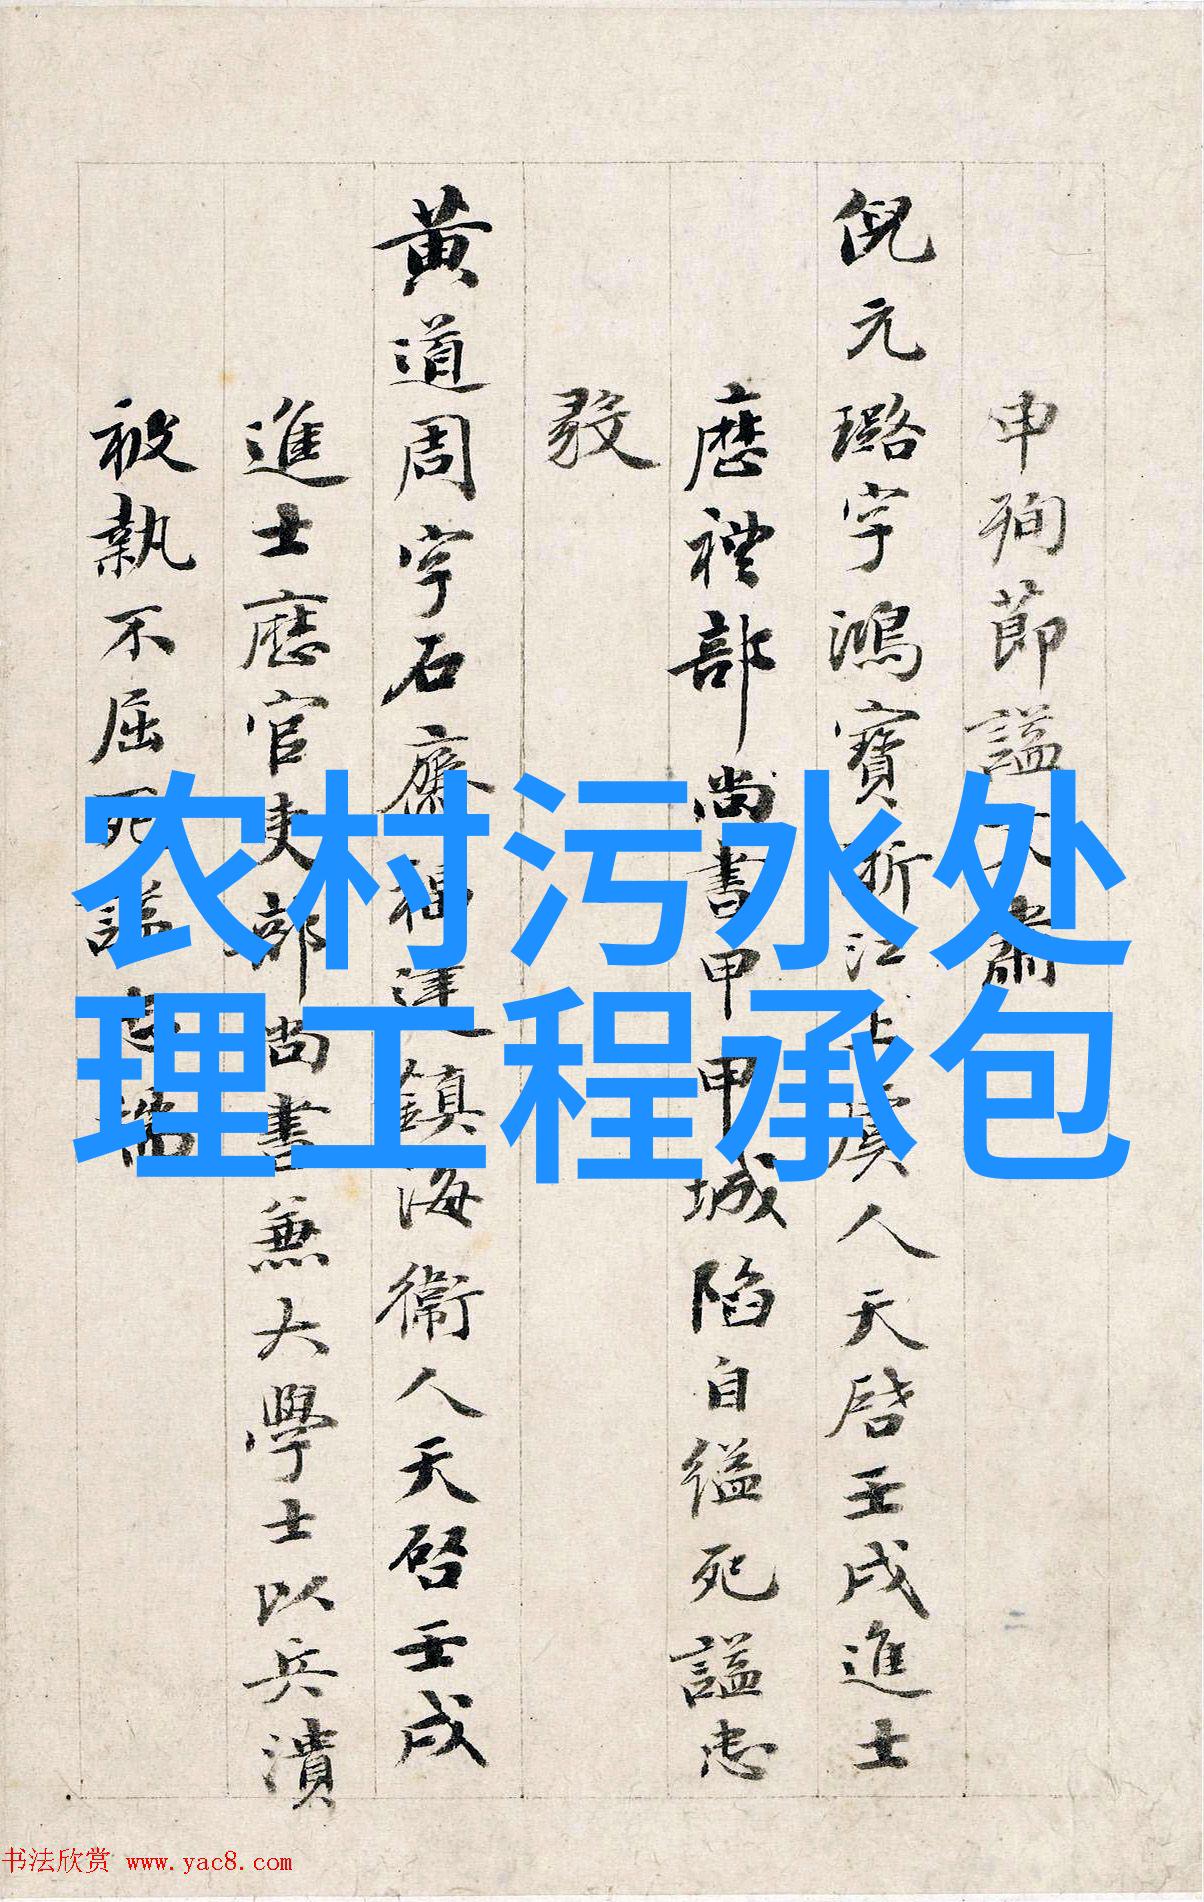 申殉節謚文肅
倪元璐字鴻寶浙江上虞人天啓壬戌進士
歷禮部尚書甲申城陷自縊死謚忠
毅
黄道周字石齋福建鎮海衛人天啓壬戌
進士歷官吏部尚書兼大學士以兵潰
被執不屈死謚忠
农村污水处
理工程承包
书法欣赏 www.yac8.com